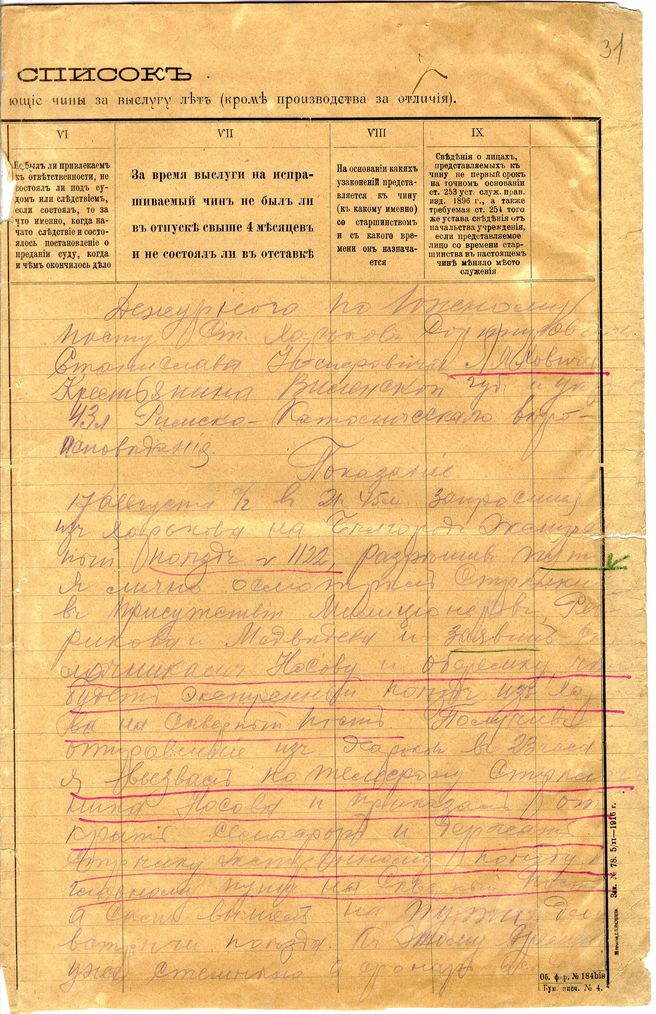 31
СПИСОКЪ
ющіе чины за выслугу лѣтъ (кромѣ производства за отличія).
VI
VII
VIII
IX
Не былъ ли привлекаемъ
къ отвѣтственности, не
состоялъ ли подъ су-
домъ или слѣдствіемъ,
если состоялъ, то за
что именно, когда на-
чато слѣдствіе и состо-
ялось постановленіе о
преданіи суду, когда
и чѣмъ окончилось дѣло
За время выслуги на испра-
шиваемый чинъ не былъ ли
въ отпускѣ свыше 4 мѣсяцевъ
и не состоялъ ли въ отставкѣ
На основаніи какихъ
узаконеній предста-
вляется къ чину
(къ какому именно)
со старшинствомъ
и съ какого вре-
мени онъ назнача-
ется
Свѣдѣнія о лицахъ,
представляемыхъ къ
чину не первый срокъ
на точномъ основаніи
ст. 253 уст. служ. прав.
изд. 1896 г., а также
требуемая ст. 254 того
же устава свѣдѣнія отъ
начальства учрежденія,
если представляемое
лицо со времени стар-
шинства въ настоящемъ
чинѣ мѣняло мѣсто
служенія
Дежурного по Южному
посту Ст. Харьковъ
Станислава
Крестьянина Виленской губ. и у
43 л Римско-Католическаго вѣро-
исповѣданія
Показаніе
17 августа с/г в 21 ч. 45 м. запросили
из Харькова на Белгородъ Экстрен
ный поездъ № 1122, разрешив путь
я лично осмотрел Стрелки
в присутствіи Милиционеровъ
рикова и Медведева и заявил
Носову и
будетъ экстренный поездъ изъ Хар
ва на Северный постъ Получив
отправление изъ Харькова в 23 часа
я вызвал по телефону Стрелоч
ника Носова и приказал от
крыть Семафоръ и держать
стрелку экстренному поезду
главному пути на Северный пост
а самъ вышел на
встречи поезда. Къ этому времени
уже стемнело и фонарь
Зак. № 78. 5/II—1916 г.
Об. ф. р. № 184bis
Бум. писч. № 4.